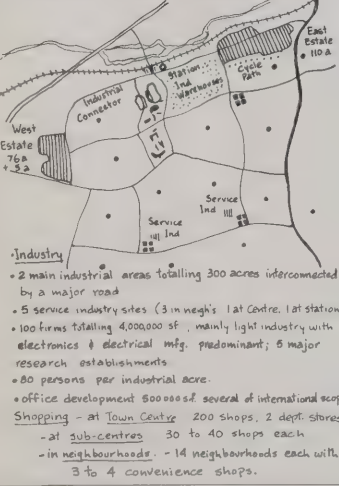 East
Estate
110 a
Station
Ind
Warehouses
Cycle
Path
Industrial
Connector
West
Estate
76a
+ 5a
Service
Ind
Service
Ind
• Industry
• 2 main industrial areas totalling 300 acres interconnected
by a major road
• 5 service industry sites (3 in neigh's 1 at Centre, 1 at station
• 100 firms totalling 4,000,000 sf, mainly light industry with
electronics & electrical mfg. predominant; 5 major
research establishments
• 80 persons per industrial acre.
• office development 500000sf several of international scop
Shopping - at Town Centre 200 shops, 2 dept. stores
- at sub-centres 30 to 40 shops each
- in neighbourhoods. - 14 neighbourhoods each with
3 to 4 convenience shops.